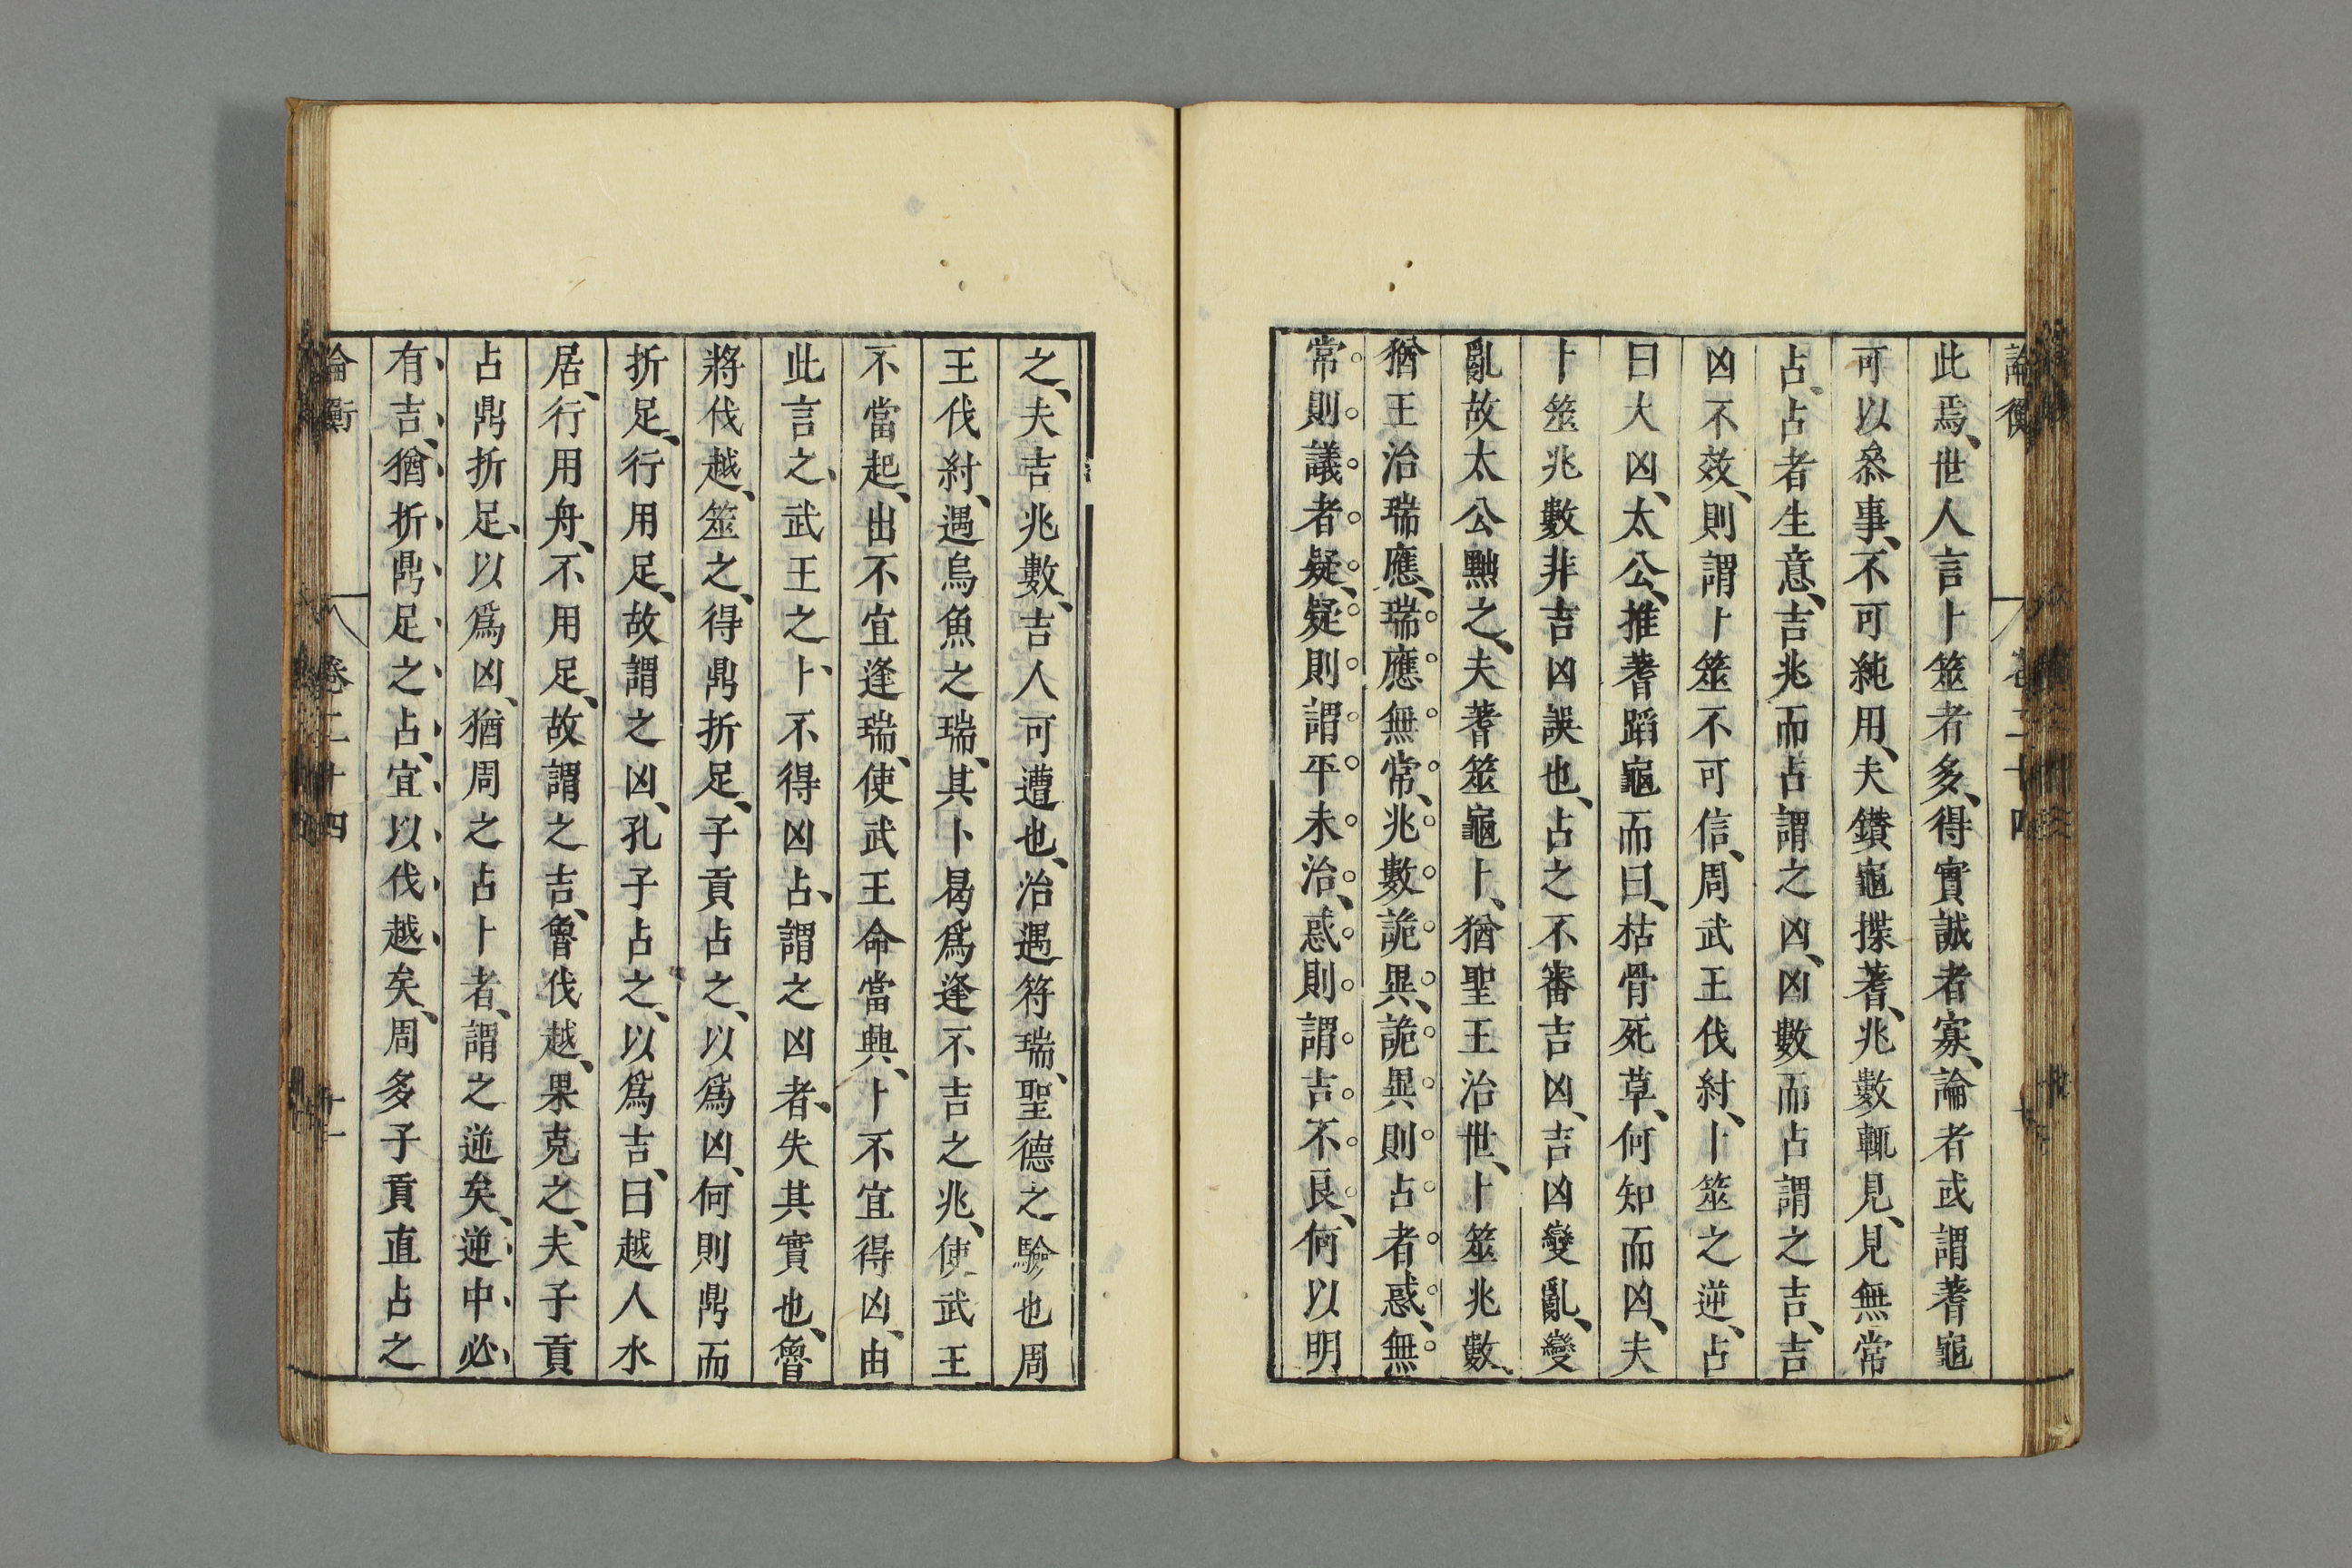 論衡 卷二十四
此焉、世人言卜筮者多、得實誠者寡、論者或謂蓍龜
可以叅事、不可純用、夫鑚龜揲蓍、兆數輒見、見無常
占、占者生意、吉兆而占謂之凶、凶數而占謂之吉、吉
凶不效、則謂卜筮不可信、周武王伐紂、卜筮之逆、占
曰大凶、太公、推蓍蹈龜而曰、枯骨死草、何知而凶、夫
卜筮兆數非吉凶誤也、占之不審吉凶、吉凶變亂、變
亂故太公黜之、夫蓍筮龜卜、猶聖王治世、卜筮兆數、
猶王治瑞應、瑞應無常、兆數詭異、詭異則占者惑、無
常則議者疑、疑則謂平未治、惑則謂吉不良、何以明
之、夫吉兆數、吉人可遭也、治遇符瑞、聖德之驗也周
王伐紂、遇烏魚之瑞、其卜曷爲逢不吉之兆、使武王
不當起、出不宜逢瑞、使武王命當興、卜不宜得凶、由
此言之、武王之卜、不得凶占、謂之凶者、失其實也、魯
將伐越、筮之、得鼎折足、子貢占之、以爲凶、何則鼎而
折足、行用足、故謂之凶、孔子占之、以爲吉、曰越人水
居、行用舟、不用足、故謂之吉、魯伐越、果克之、夫子貢
占鼎折足、以爲凶、猶周之占卜者、謂之逆矣、逆中必
有吉、猶折鼎足之占、宜以伐越矣、周多子貢直占之
論衡 卷二十四 十一